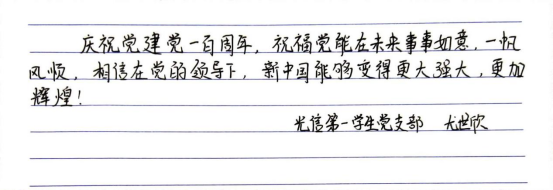 庆祝党建党一百周年，祝福党能在未来事事如意，一帆
风顺，相信在党的领导下，新中国能够变得更大强大，更加
辉煌！
光信第一学生党支部 尤世欣